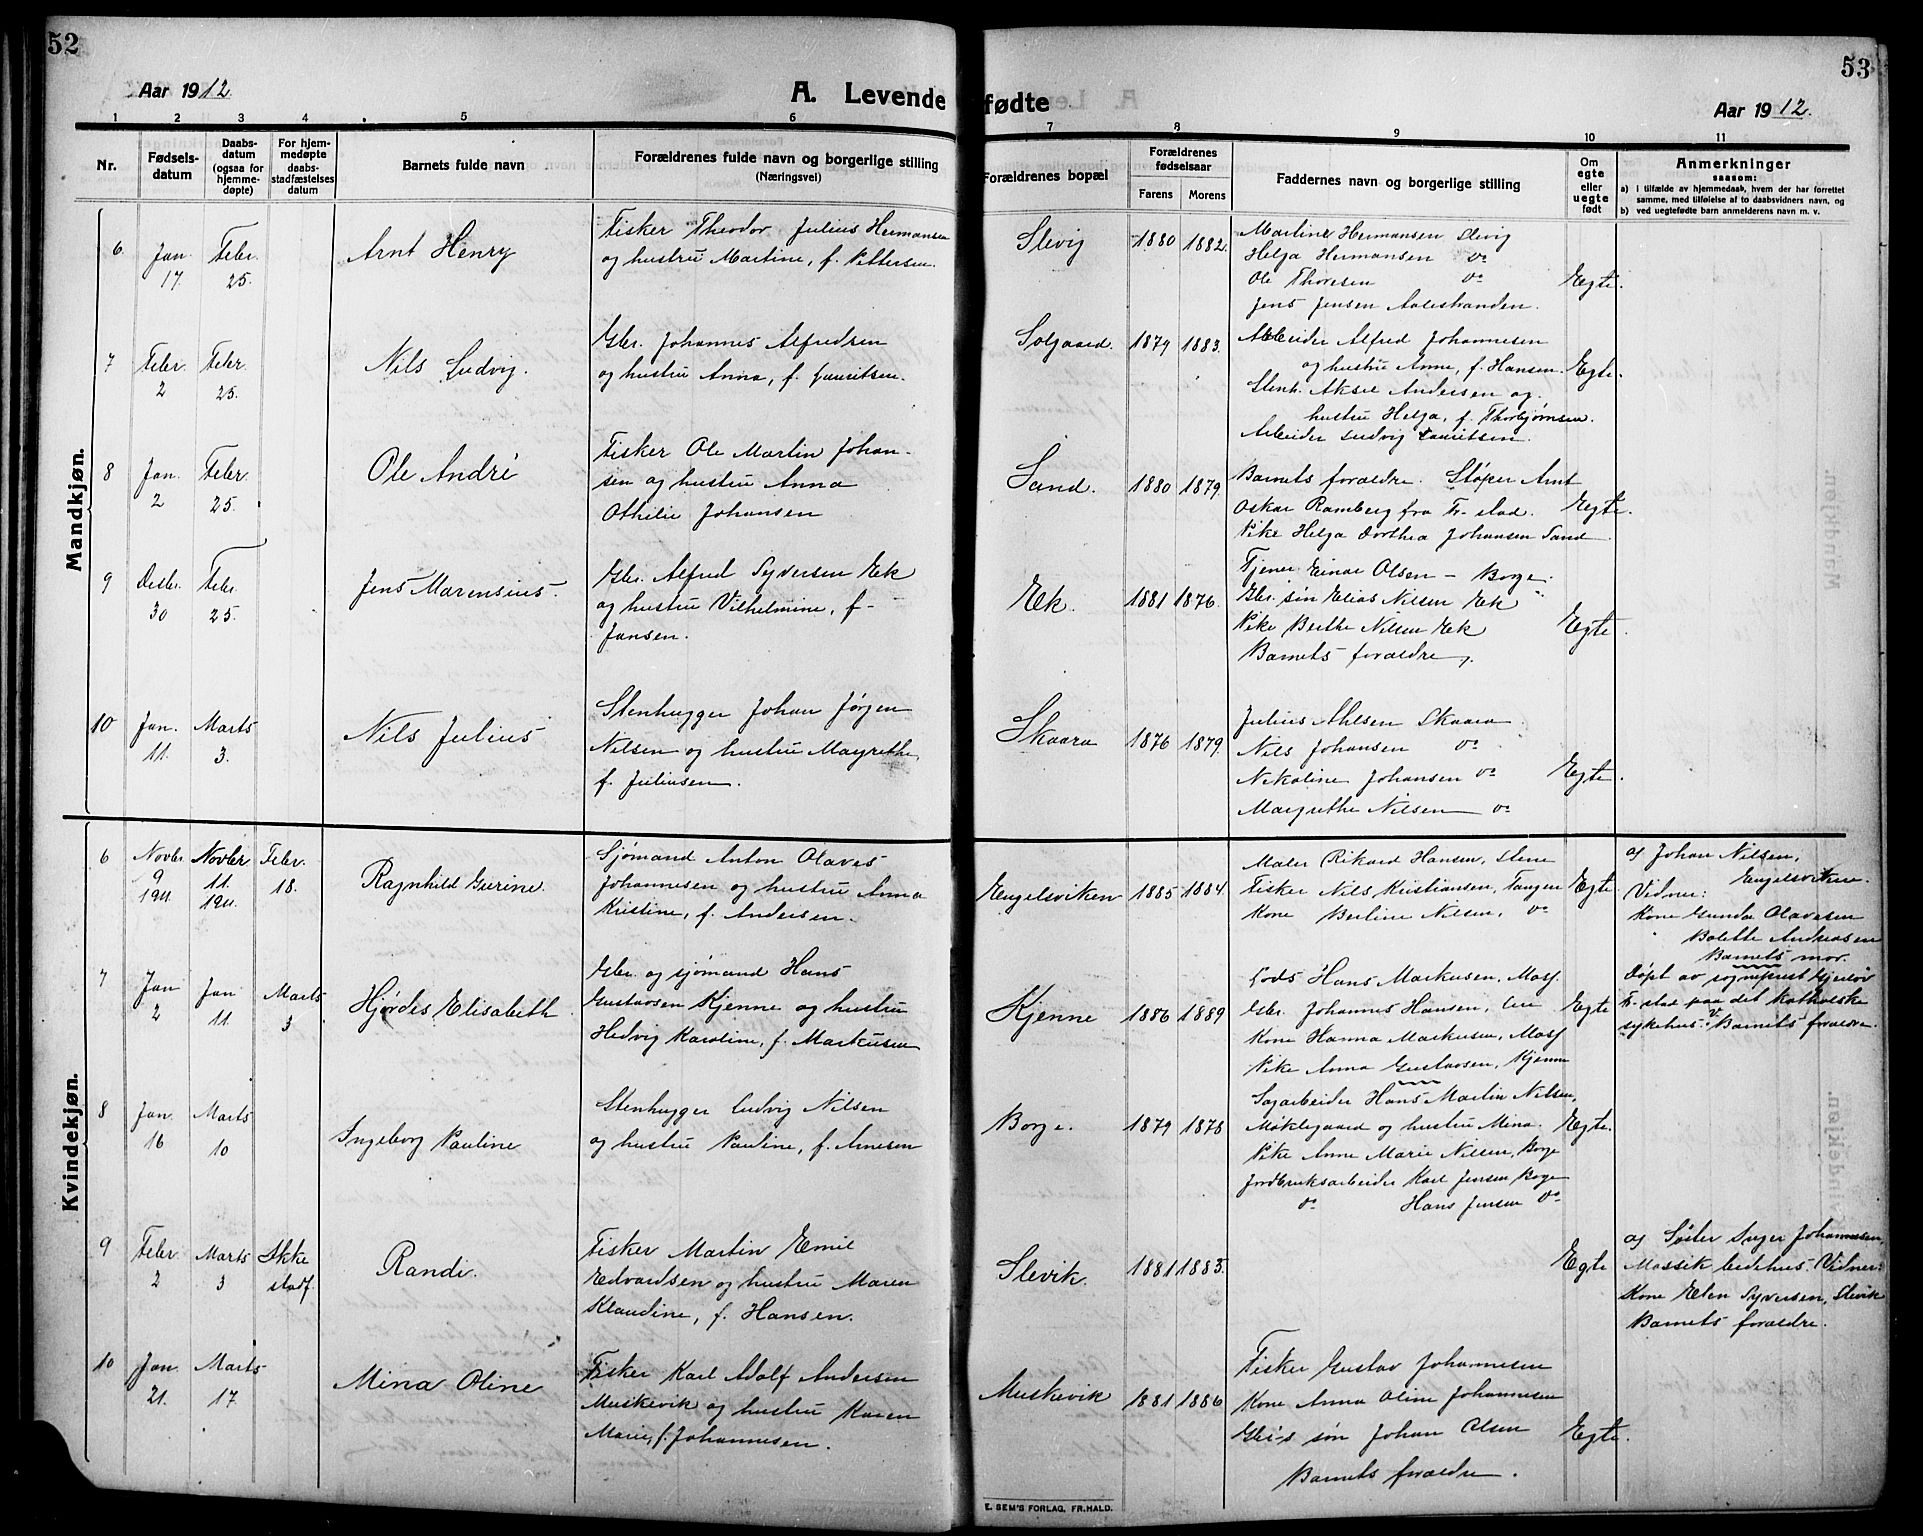 52
Aar 1912.
A. Levende
fødte
Aar 1912.
53
1 2 3 4 5 6
7 8 9 10 11
Nr.
Fødsels-
datum
Daabs-
datum
(ogsaa for
hjemme-
døpte)
For hjem-
medøpte
daabs-
stadfæstelses
datum
Barnets fulde navn
Forældrenes fulde navn og borgerlige stilling
(Næringsvei)
Forældrenes bopæl
Forældrenes
fødselsaar
Farens Morens
Faddernes navn og borgerlige stilling
Om
egte
eller
uegte
født
Anmerkninger
saasom:
a) i tilfælde av hjemmedaab, hvem der har forrettet
samme, med tilføielse af to daabsvidners navn, og
b) ved uegtefødte barn anmelderens navn m. v.
Mandkjøn.
6
Jan.
17.
Febr.
25.
Arnt Henry
Fisker Theodor Julius Hermansen
og hustru Martine, f. Pettersen.
Slevig
1880 1882.
Martine Hermansen Slevig
Helga Hermansen do
Ole Thoresen do
Jens Jensen Aalestranden.
Egte.
7
Febr.
2
Febr.
25.
Nils Ludvig.
Gbr. Johannes Alfredsen
og hustru Anna, f. Lauritsen.
Solgaard.
1879 1883.
Arbeider Alfred Johannesen
og hustru Anne, f. Hansen.
Stenh. Aksel Andersen og
hustru Helga, f. Thorbjørnsen.
Arbeider Ludvig Lauritsen.
Egte.
8
Jan.
2
Febr.
25.
Ole André
Fisker Ole Martin Johan-
sen og hustru Anna
Othilie Johansen
Sand.
1880 1879.
Barnets forældre. Støper Arnt
Oskar Ramberg fra Fr.stad.
Pike Helga Dorthea Johansen Sand
Egte.
9
Desbr.
30
Febr.
25.
Jens Marensius.
Gbr. Alfred Syversen Ek
og hustru Vilhelmine, f.
Jansen.
Ek.
1881 1876.
Tjener Einar Olsen - Borge.
Gbr. søn Elias Nilsen Ek
Pike Berthe Nilsen Ek
Barnets forældre.
Egte.
10
Jan.
11.
Marts
3.
Nils Julius
Stenhugger Johan Jørgen
Nilsen og hustru Magrethe,
f. Juliusen.
Skaara
1876 1879.
Julius Ahlsen Skaara.
Nils Johansen do
Nikoline Johansen do
Margrethe Nilsen do
Egte.
Kvindekjøn.
6
Novbr.
9
1911.
Novbr
11.
1911.
Febr.
18.
Ragnhild Gurine.
Sjømand Anton Olaves
Johannesen og hustru Anna
Kristine, f. Andersen.
Engelsviken
1885 1884.
Maler Rikard Hansen, Stene
Fisker Nils Kristiansen, Tangen
Kone Berline Nilsen, do
Egte
af Johan Nilsen,
Engelsviken.
Vidner:
Kone Gunda Olavesen
Bolette Andreasen
Barnets mor.
7
Jan
2
Jan
11.
Marts
3
Hjørdes Elisabeth
Gbr. og sjømand Hans
Gustavsen Kjenne og hustru
Hedvig Karoline, f. Markusen
Kjenne
1886 1889
Lods Hans Markusen, Mosf.
Gbr. Johannes Hansen,
Kone Hanna Markusen, Mosf
Pike Anna Gustavsen, Kjenne
Egte
Døpt av sogneprest
Fr.stad paa det katholske
sykehus. V. Barnets forældre.
8
Jan.
16
Marts
10
Ingeborg Pauline
Stenhugger Ludvig Nilsen
og hustru Pauline, f. Arnesen
Borge.
1879 1878
Sagarbeider Hans Martin Nilsen,
Møklegaard og hustru Mina.
Pike Anne Marie Nilsen, Borge
Jordbruksarbeider Karl Jensen Borge
do Hans Jensen do
Egte.
9
Febr.
2
Marts
3
Ikke
stadf.
Randi.
Fisker Martin Emil
Edvardsen og hustru Maren
Klaudine, f. Hansen.
Slevik.
1881 1883.
Egte
af Søster Inger Johannesen,
Mossik bedehus. Vidner:
Kone Elen Syversen, Slevik
Barnets forældre.
10
Jan.
21.
Marts
17.
Mina Oline
Fisker Karl Adolf Andersen
Muskevik og hustru Karen
Marie, f. Johannesen.
Muskevik
1881 1886
Fisker Gustav Johannesen
Kone Anna Oline Johannesen
Gbr's søn Johan Olsen
Barnets forældre.
Egte.
E. SEM'S FORLAG, FR.HALD.